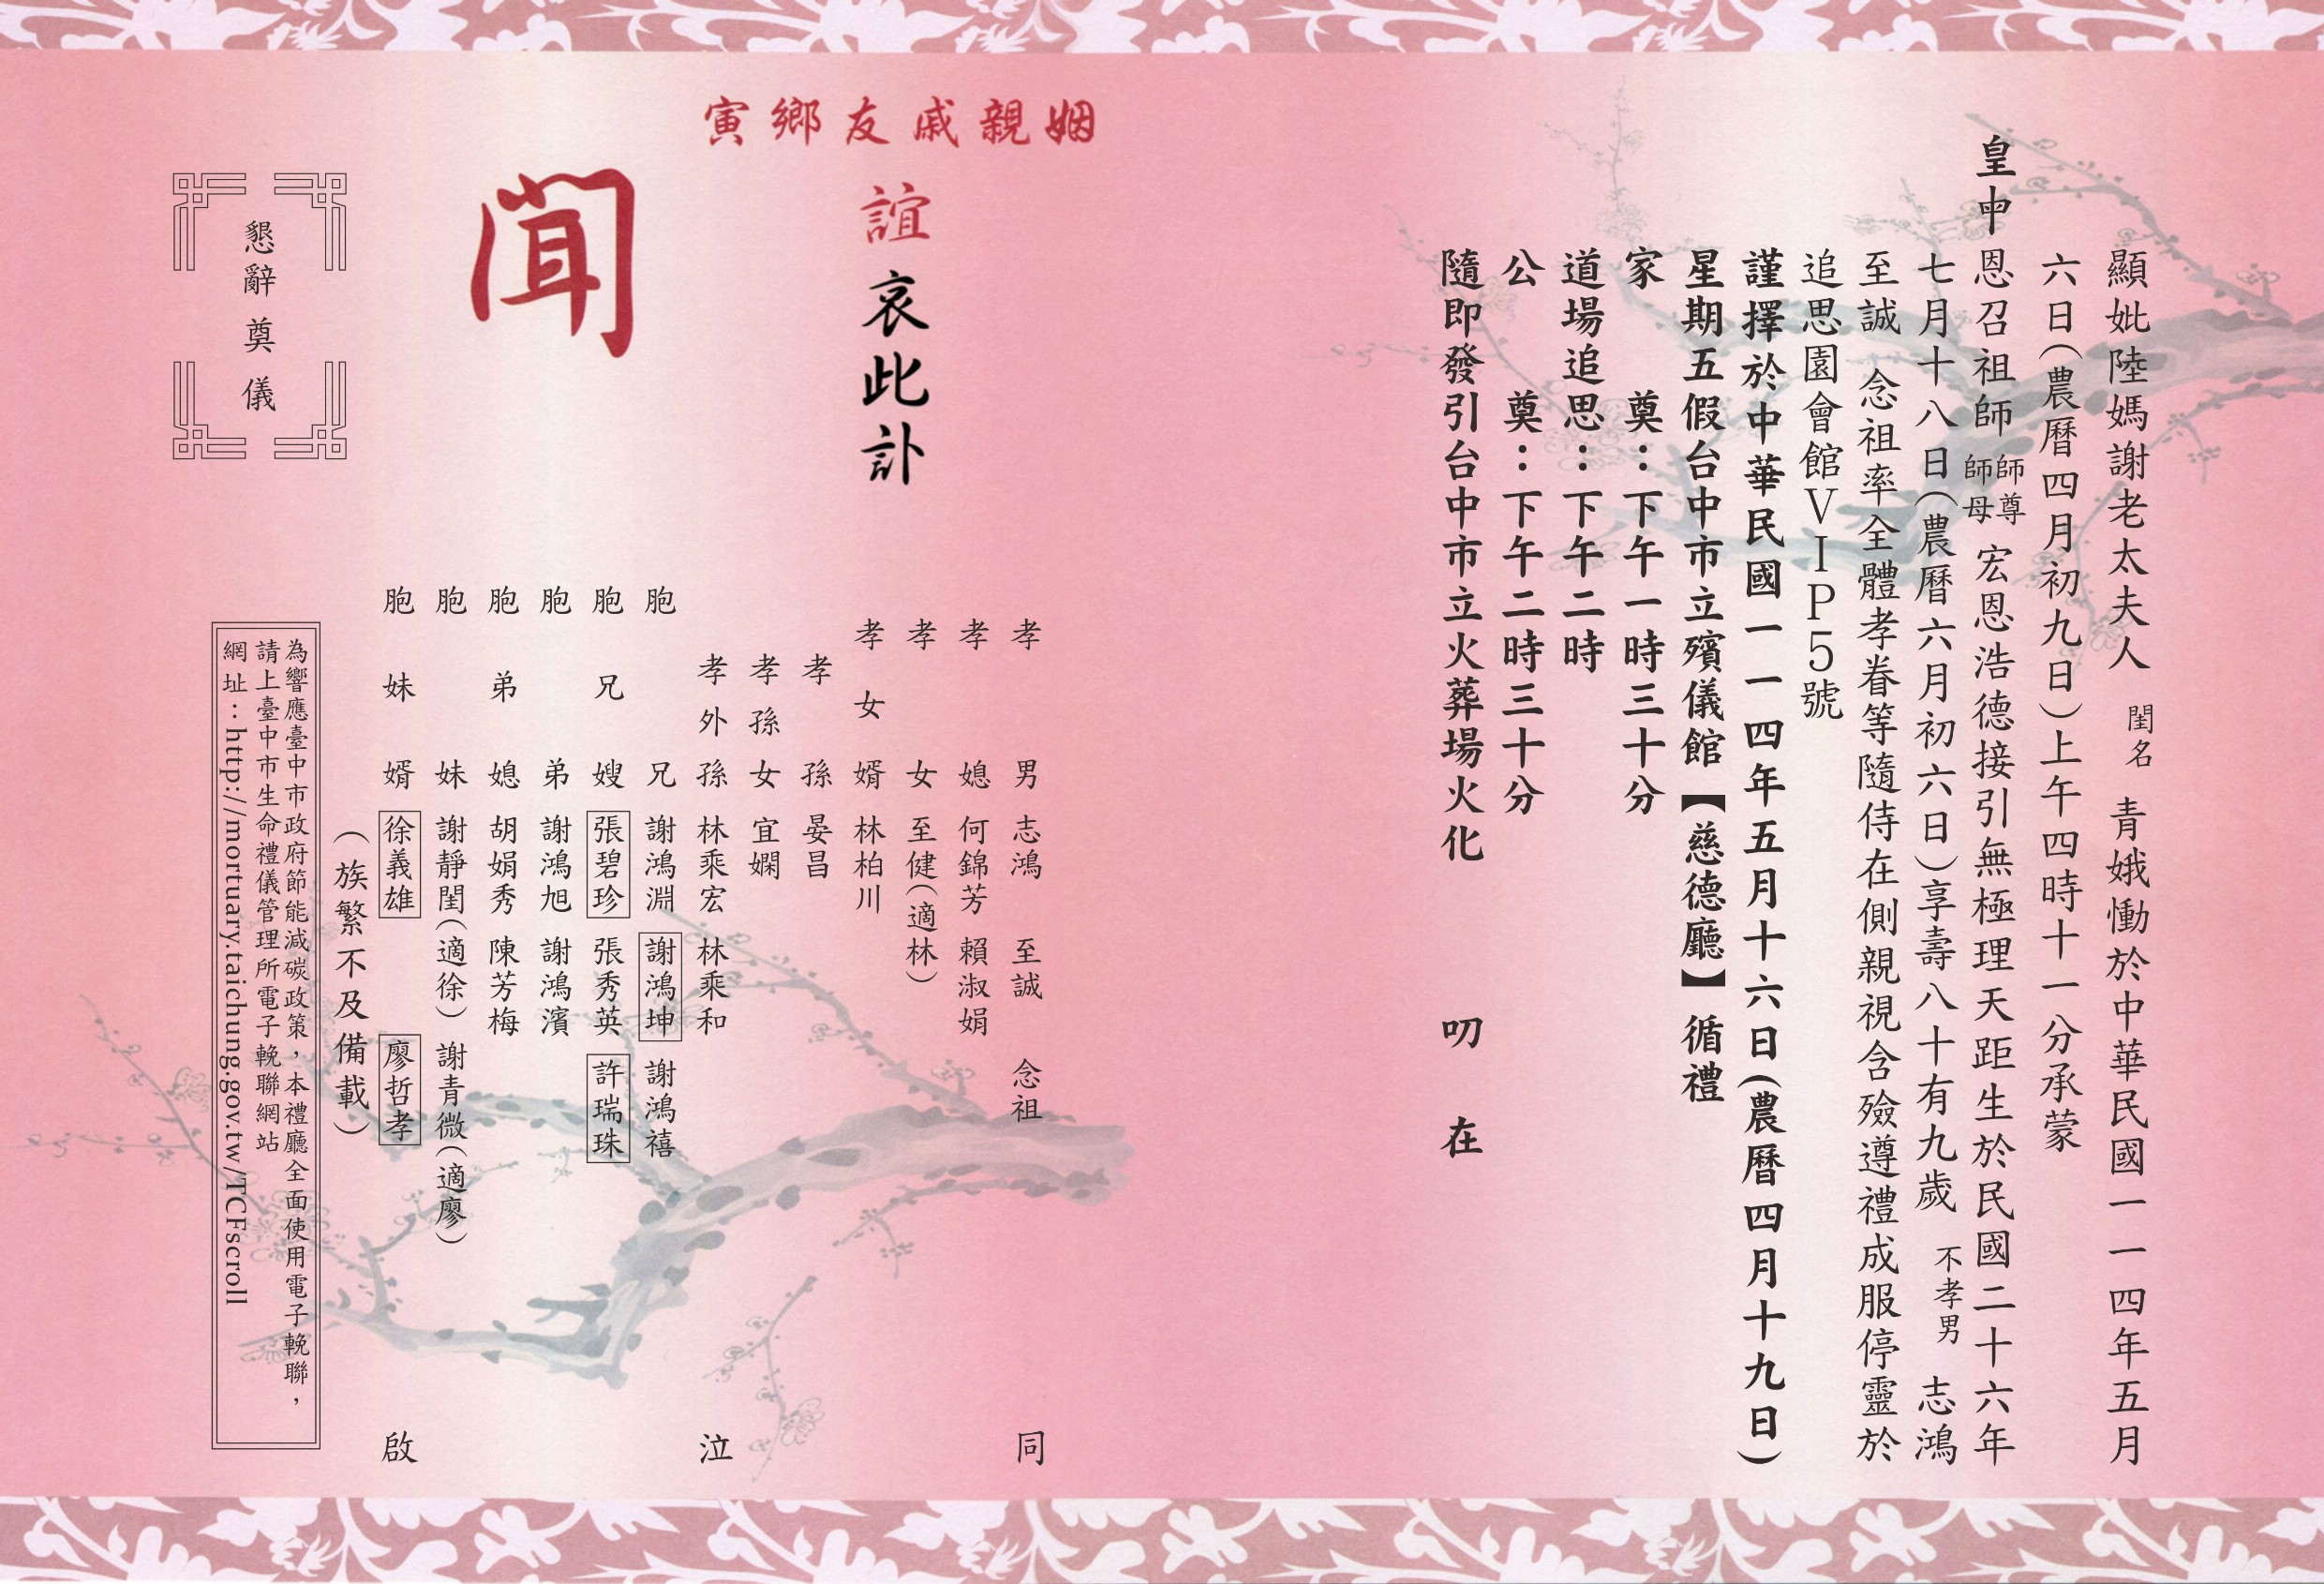 顯妣陸媽謝老太夫人 閨名 青娥慟於中華民國一一四年五月
六日(農曆四月初九日)上午四時十一分承蒙
皇申恩召祖師 師尊 師母 宏恩浩德接引無極理天距生於民國二十六年
七月十八日(農曆六月初六日)享壽八十有九歲 不孝男 志鴻
至誠 念祖率全體孝眷等隨侍在側親視含殮遵禮成服停靈於
追思園會館VIP5號
謹擇於中華民國一一四年五月十六日(農曆四月十九日)
星期五假台中市立殯儀館【慈德廳】循禮
家 奠：下午一時三十分
道場追思：下午二時
公 奠：下午二時三十分
隨即發引台中市立火葬場火化 叨 在
姻親戚友鄉寅
誼哀此訃
聞
孝男 志鴻 至誠 念祖 同
孝媳 何錦芳 賴淑娟
孝女 至健(適林)
孝女婿 林柏川
孝孫 晏昌
孝孫女 宜嫻
孝外孫 林乘宏 林乘和 泣
胞兄 謝鴻淵 謝鴻坤 謝鴻禧
胞兄嫂 張碧珍 張秀英 許瑞珠
胞弟 謝鴻旭 謝鴻濱
胞弟媳 胡娟秀 陳芳梅
胞妹 謝靜閨(適徐) 謝青微(適廖)
胞妹婿 徐義雄 廖哲孝 啟
(族繁不及備載)
為響應臺中市政府節能減碳政策，本禮廳全面使用電子輓聯，
請上臺中市生命禮儀管理所電子輓聯網站
網址：http://mortuary.taichung.gov.tw/TCFscroll
懇辭奠儀